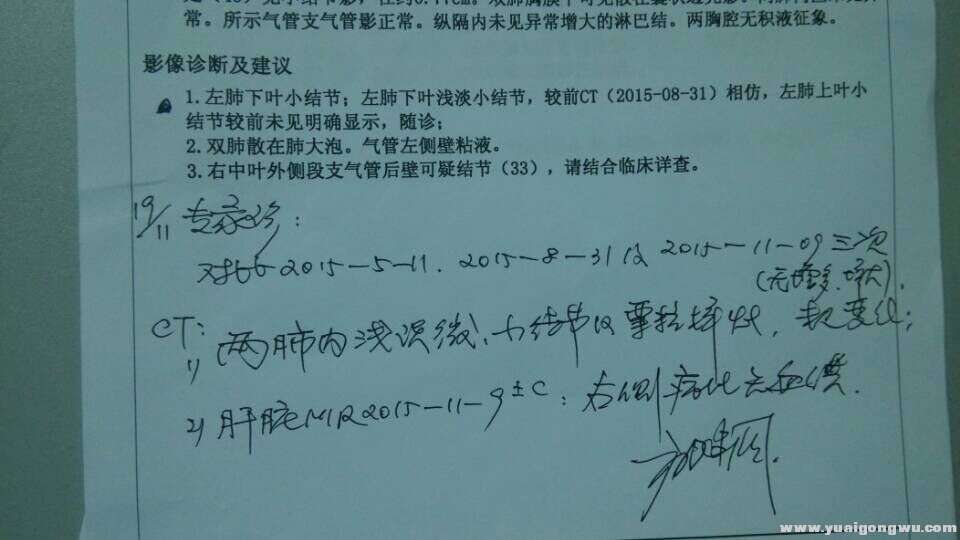 常。所示气管支气管影正常。纵隔内未见异常增大的淋巴结。两胸腔无积液征象。
影像诊断及建议
1.左肺下叶小结节；左肺下叶浅淡小结节，较前CT（2015-08-31）相仿，左肺上叶小
结节较前未见明确显示，随诊；
2.双肺散在肺大泡。气管左侧壁粘液。
3.右中叶外侧段支气管后壁可疑结节（33），请结合临床详查。
19/11 专家会诊：
对比 2015-5-11. 2015-8-31及 2015-11-09 三次
(无增多、增大).
CT:
1) 两肺内浅淡微、小结节
2) 肝脏MR2015-11-9 ±C：右侧病
www.yuaigongwu.com